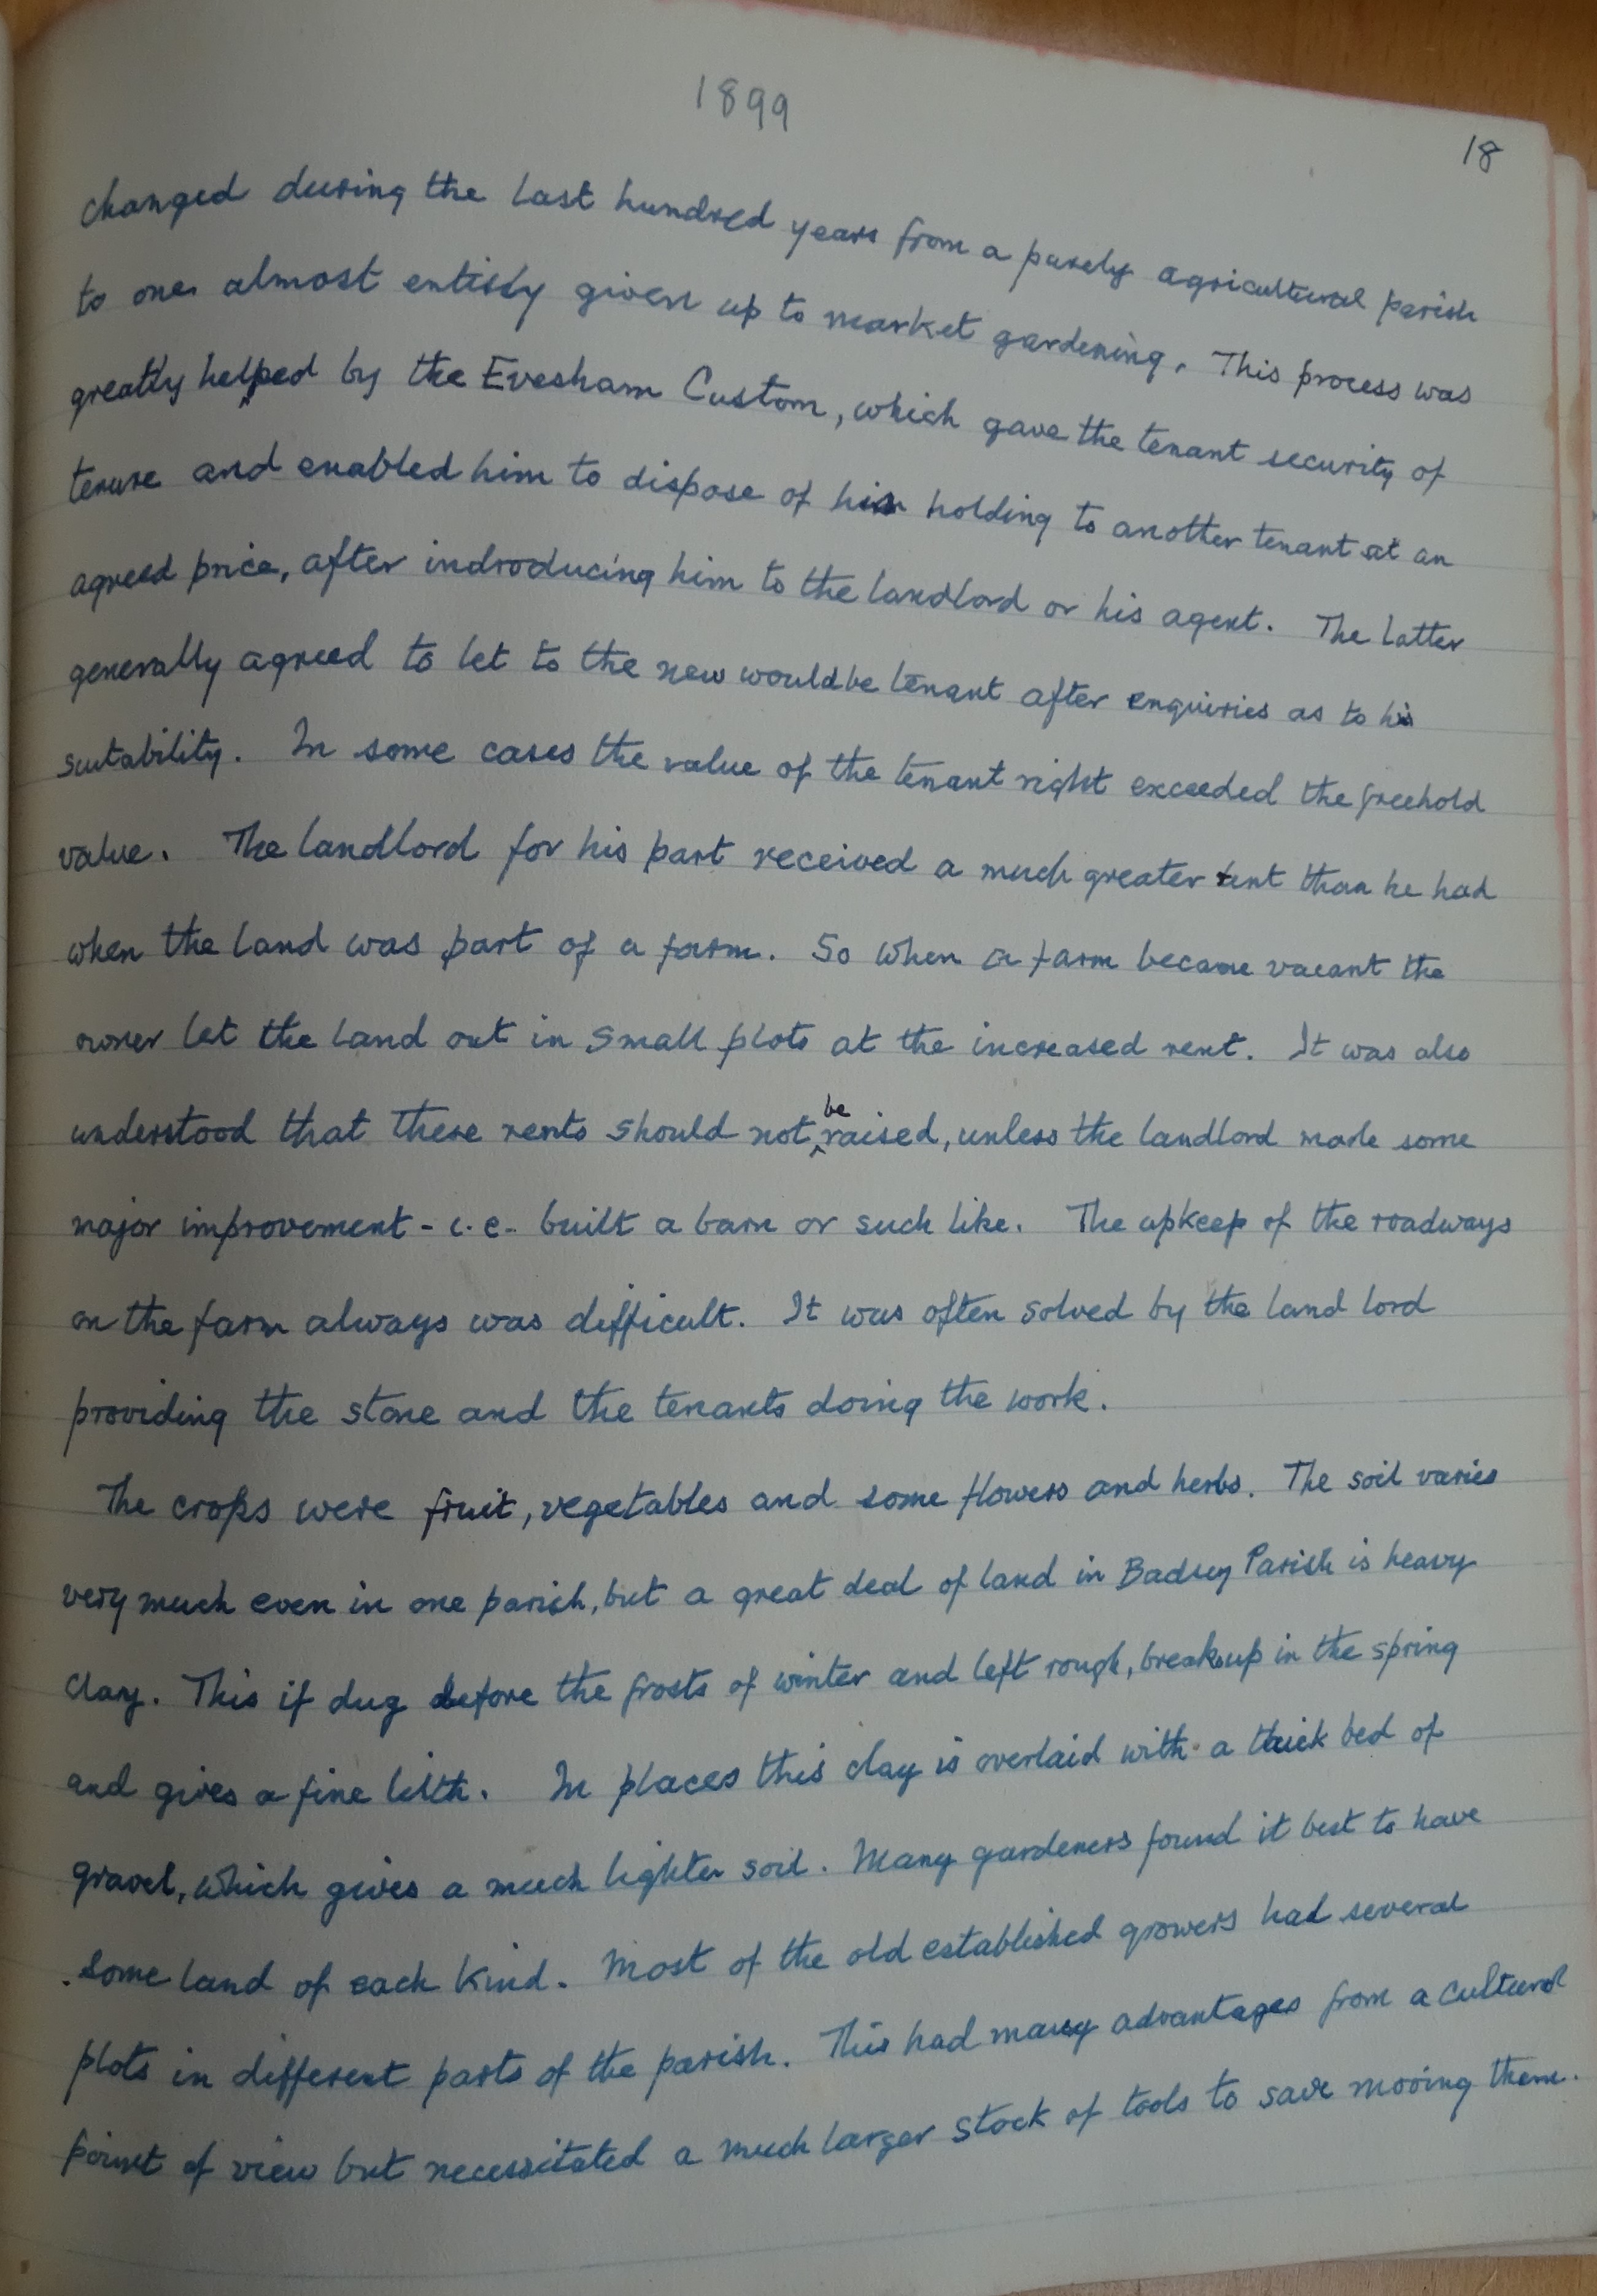 1899
18
changed during the last hundred years from a purely agricultural parish
to one almost entirely given up to market gardening. This process was
greatly helped by the Evesham Custom, which gave the tenant security of
tenure and enabled him to dispose of his holding to another tenant at an
agreed price, after indroducing him to the landlord or his agent. The latter
generally agreed to let to the new wouldbe tenant after enquiries as to his
suitability. In some cases the value of the tenant right exceeded the freehold
value. The landlord for his part received a much greater rent than he had
when the land was part of a farm. So when a farm became vacant the
owner let the land out in small plots at the increased rent. It was also
understood that these rents should not be raised, unless the landlord made some
major improvement - i.e. built a barn or such like. The upkeep of the roadways
on the farm always was difficult. It was often solved by the land lord
providing the stone and the tenants doing the work.
The crops were fruit, vegetables and some flowers and herbs. The soil varies
very much even in one parish, but a great deal of land in Badsey Parish is heavy
clay. This if dug before the frosts of winter and left rough, breaks up in the spring
and gives a fine tilth. In places this clay is overlaid with a thick bed of
gravel, which gives a much lighter soil. Many gardeners found it best to have
some land of each kind. Most of the old established growers had several
plots in different parts of the parish. This had many advantages from a cultural
point of view but necessitated a much larger stock of tools to save moving them.